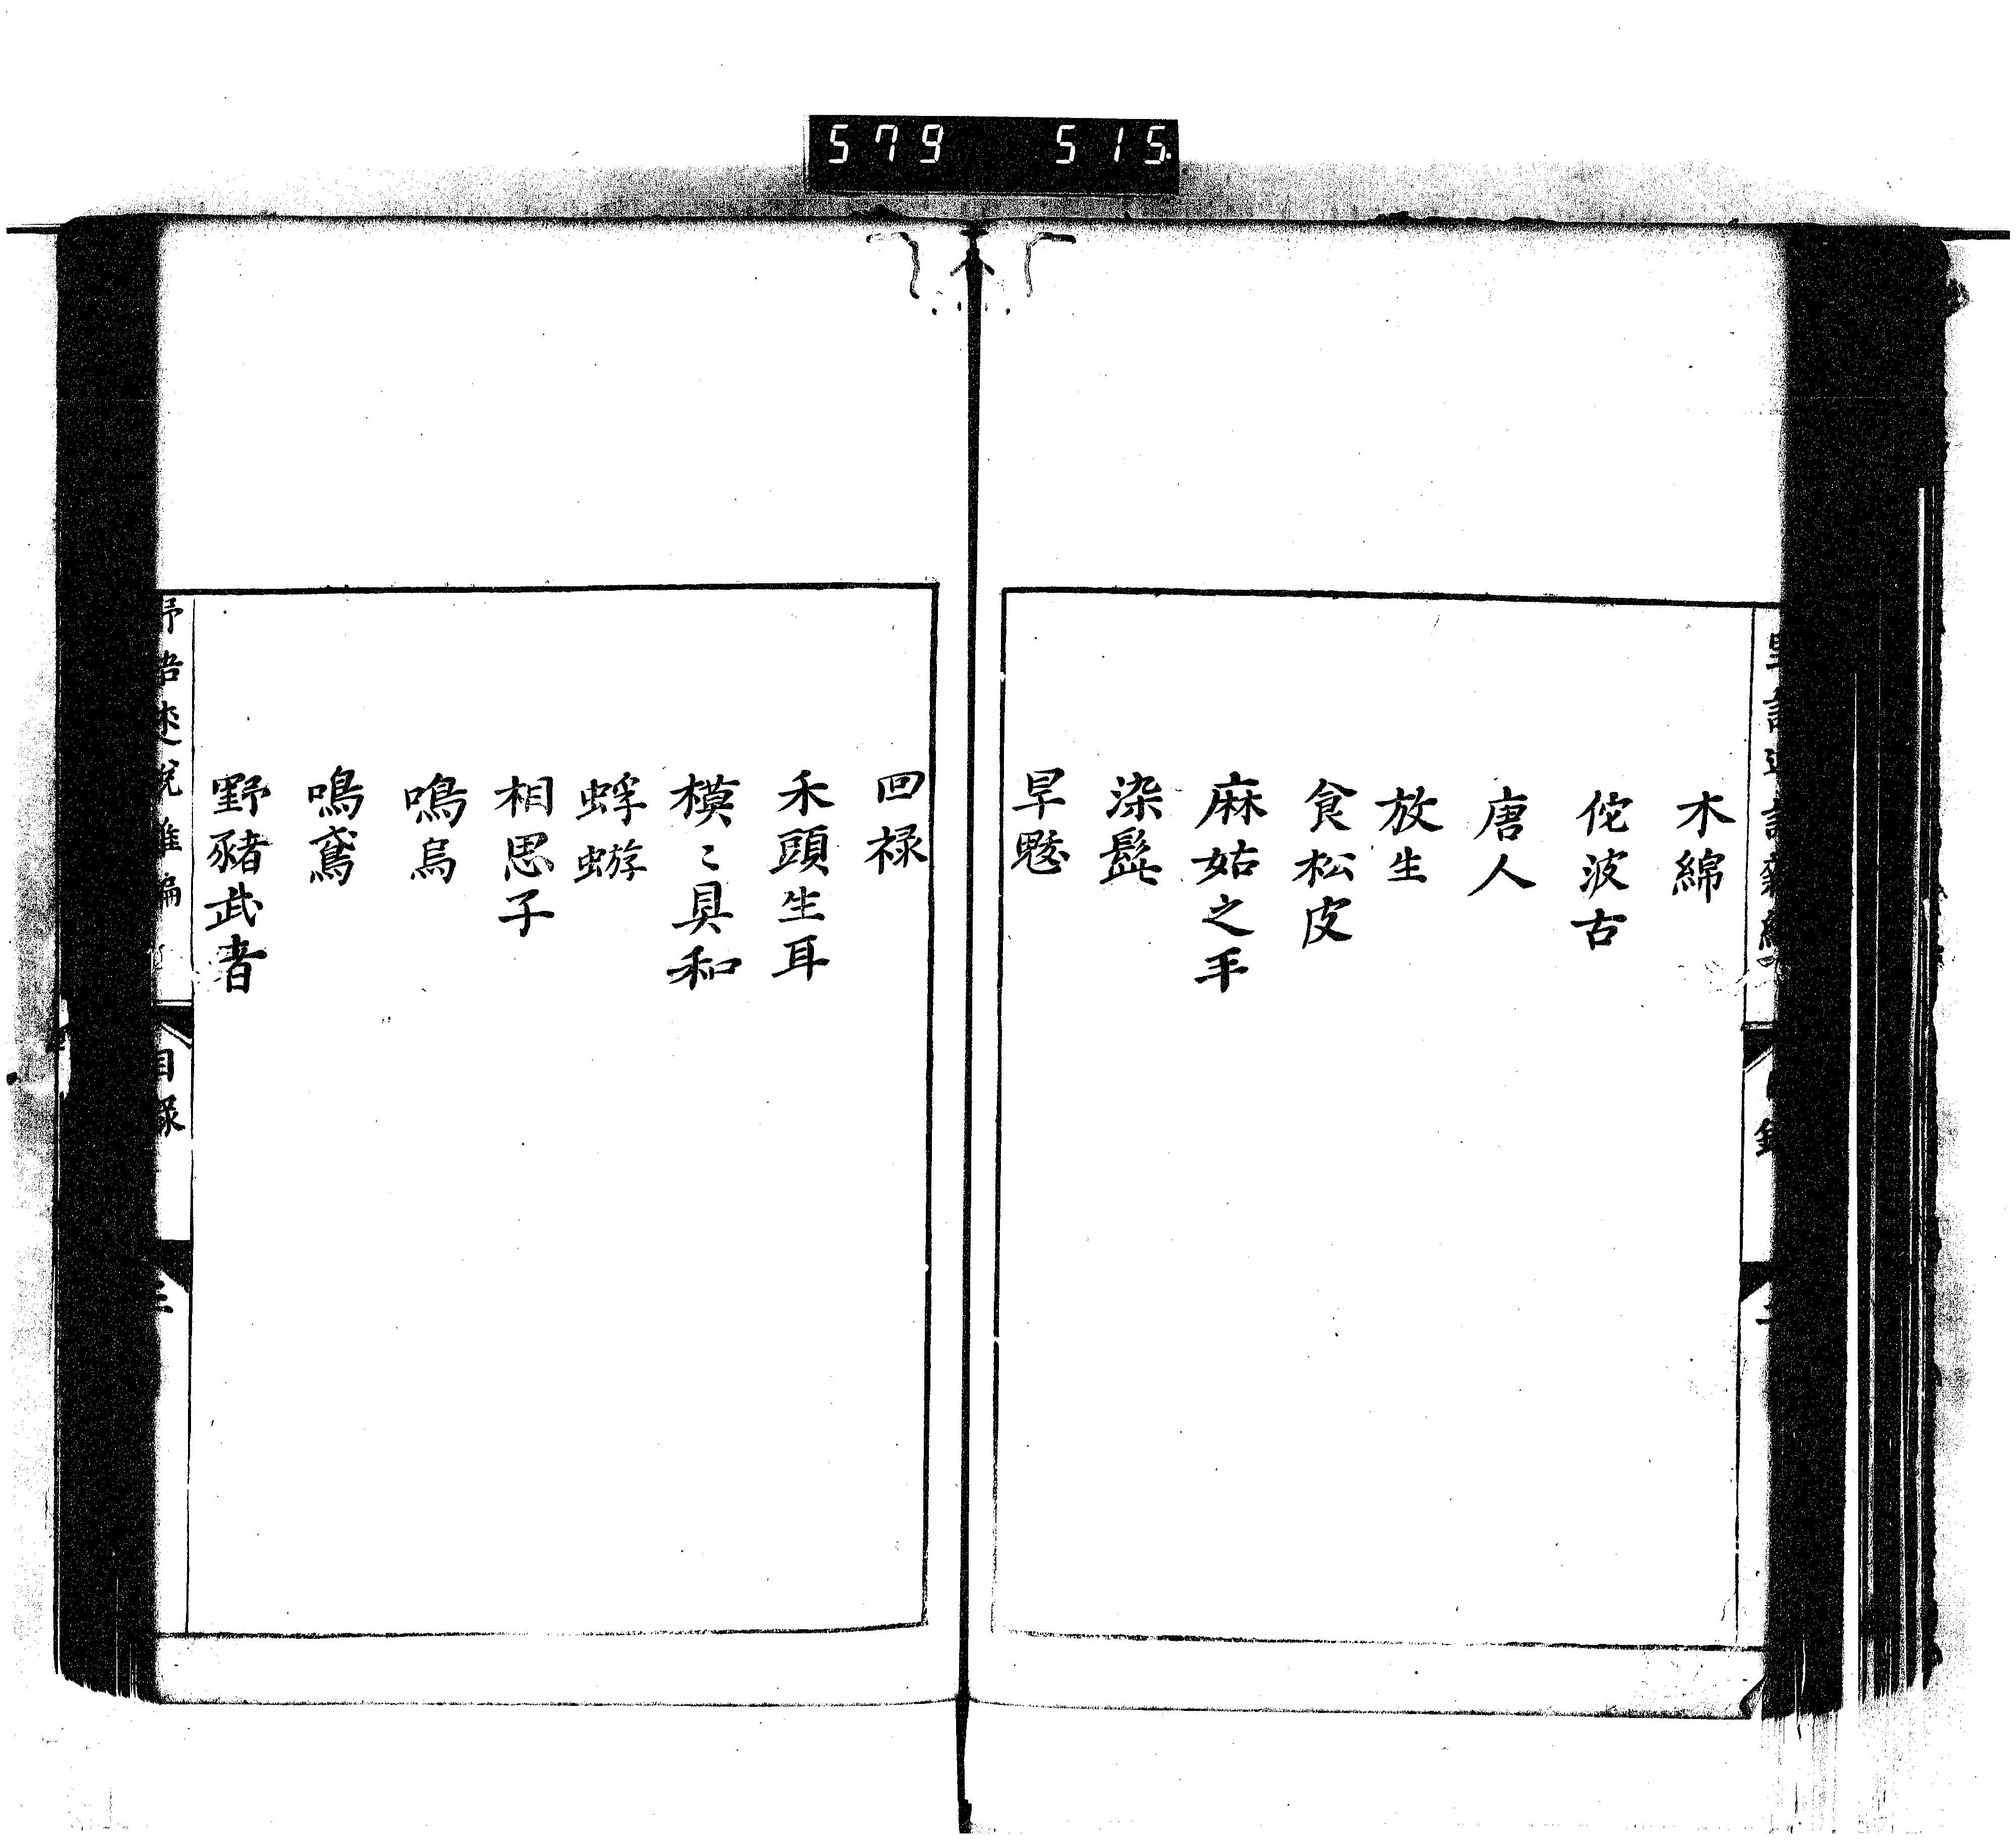 579 515
木綿
佗波古
唐人
放生
食松皮
麻姑之手
染髭
早魃
回禄
禾頭生耳
模〻具和
蜉蝣
相思子
鳴烏
鳴鳶
野豬武者
目録
三